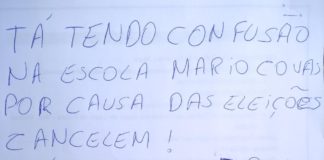 TÁ TENDO CONFUSÃO
NA ESCOLA MARIO COVAS
POR CAUSA DAS ELEIÇÕES
CANCELEM !